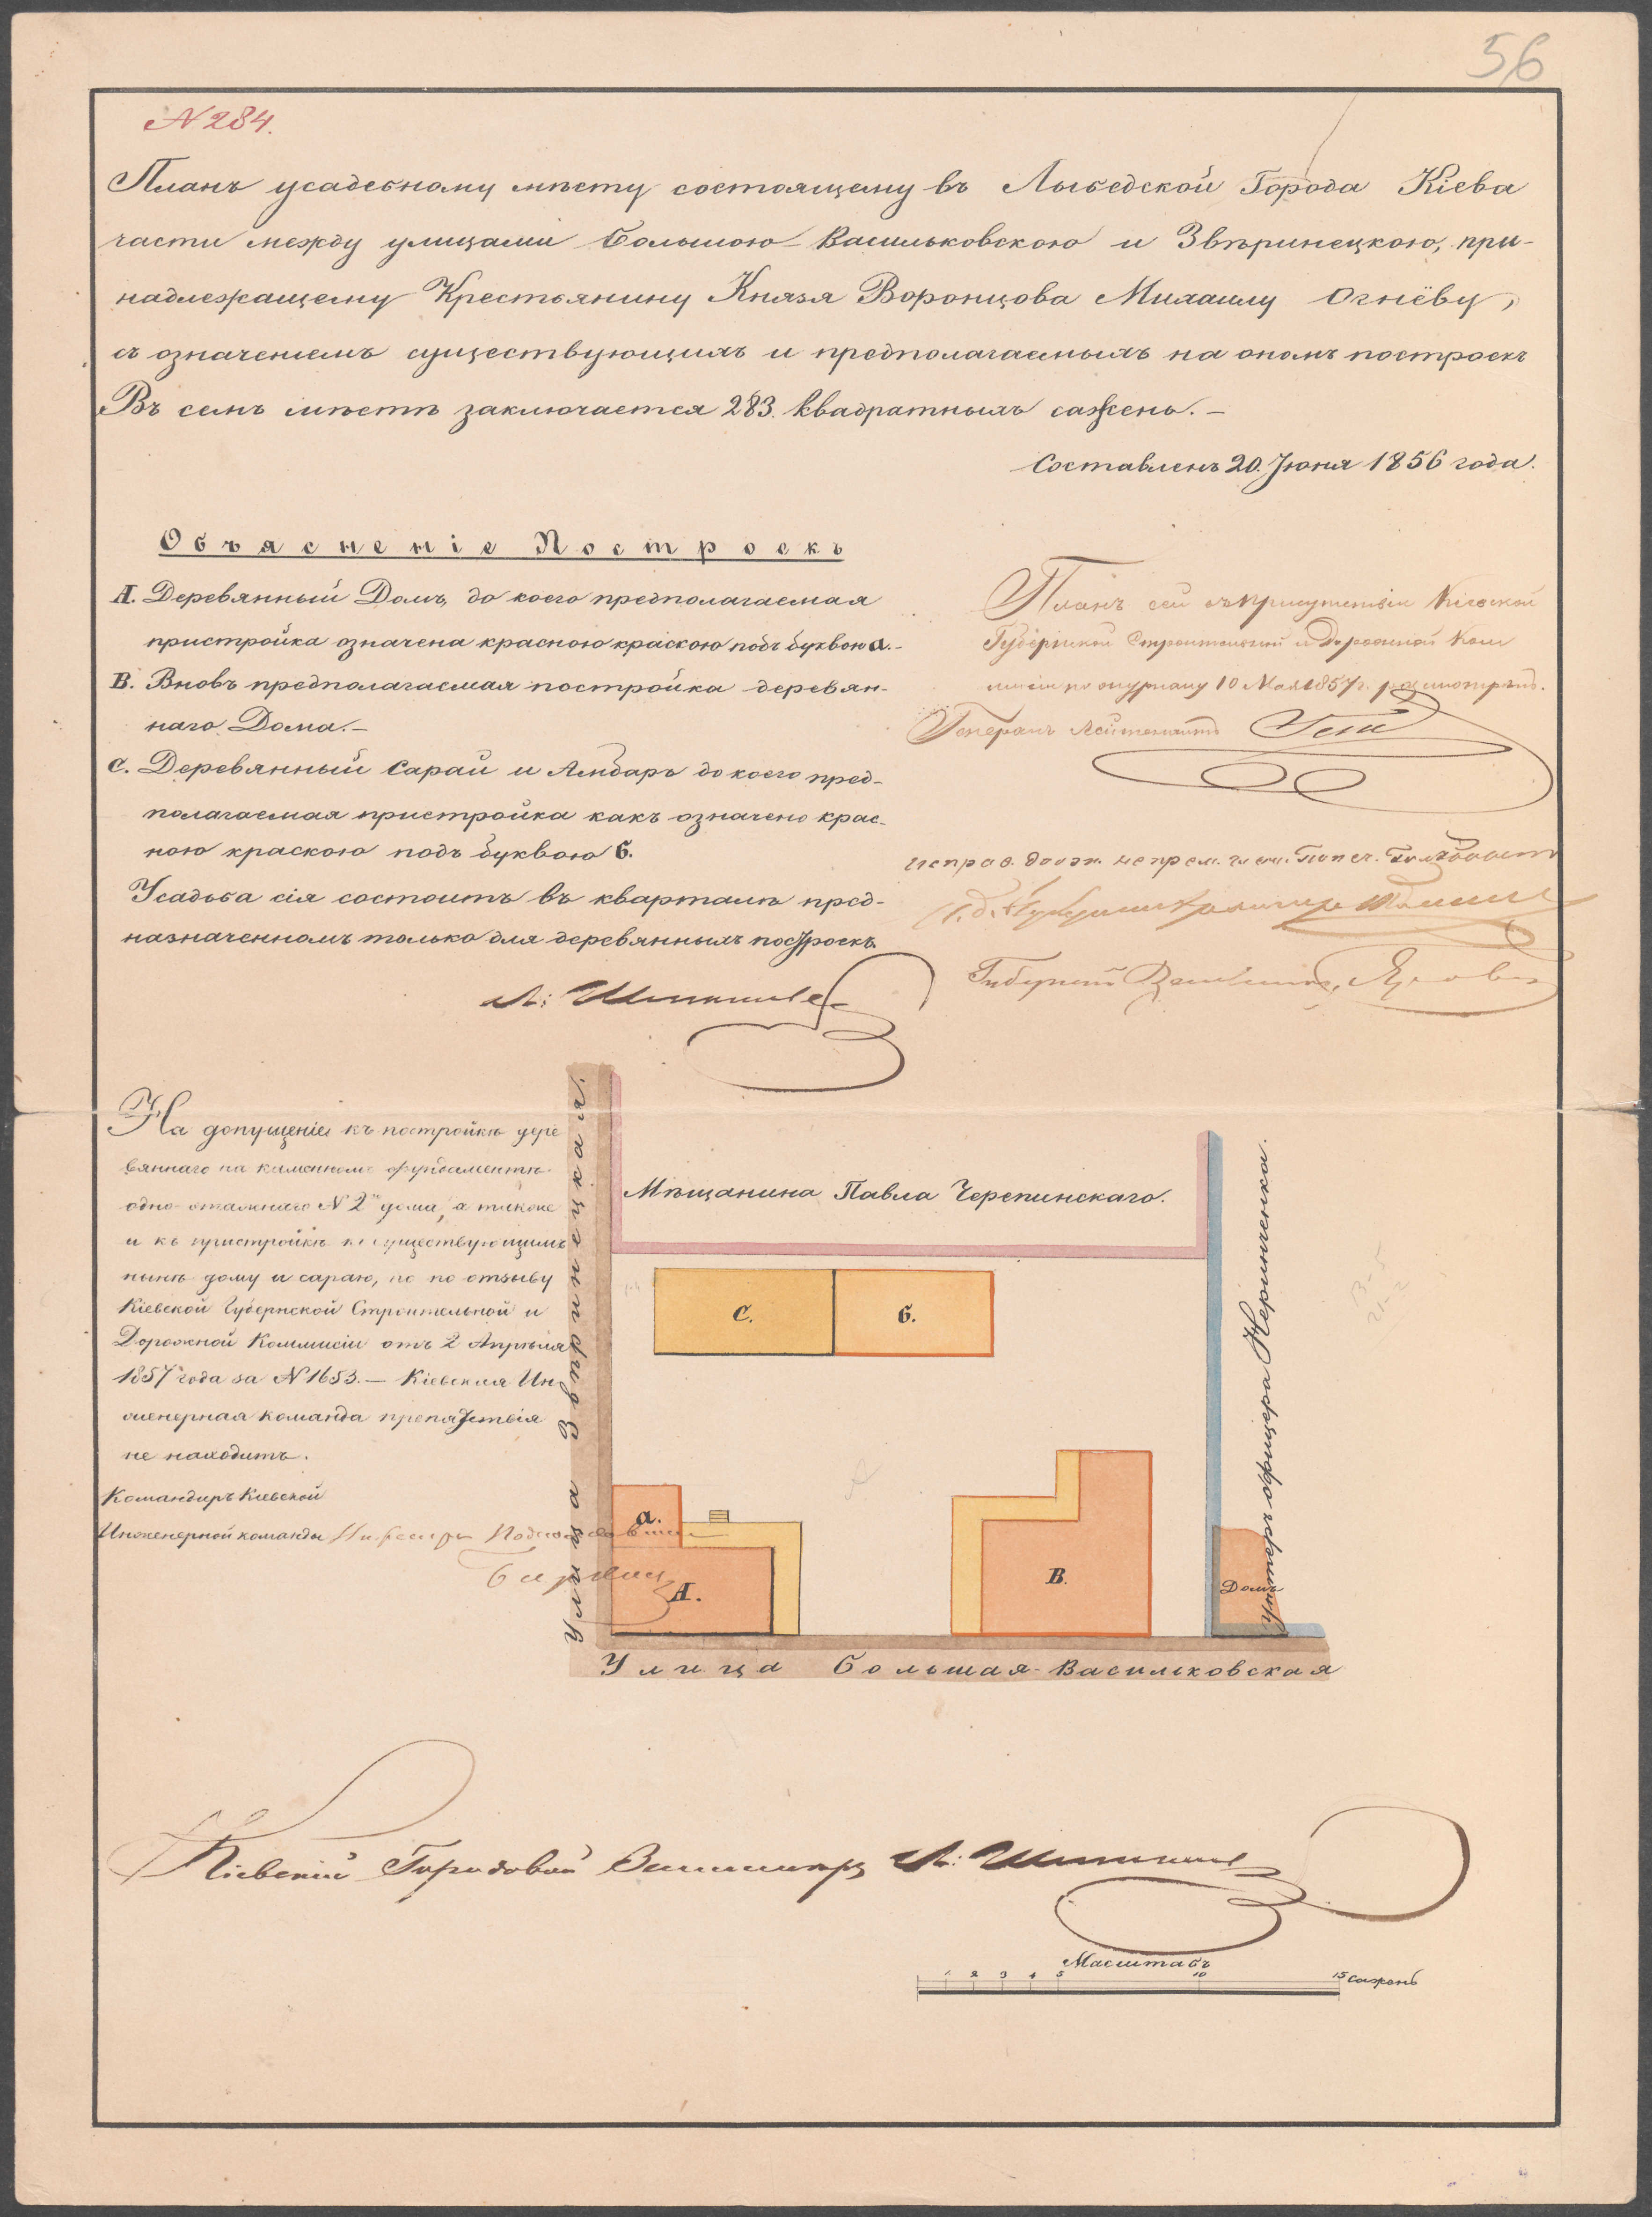 56
N 284.
Планъ усадебному мѣсту состоящему въ Лыбедской Города Кіева
части между улицами Большою-Васильковскою и Звѣринецкою, при-
надлежащему Крестьянину Князя Воронцова Михаилу Огнёву,
съ означеніемъ существующихъ и предполагаемыхъ на ономъ построекъ
Въ семъ мѣстѣ заключается 283. квадратныхъ сажень.-
Составленъ 20. Іюня 1856 года.
Объясненіе Построекъ
А. Деревянный Домъ, до коего предполагаемая
пристройка означена красною краскою подъ буквою а.-
В. Вновь предполагаемая постройка деревян-
наго Дома.-
С. Деревянный Сарай и Амбаръ до коего пред-
полагаемая пристройка какъ означено крас-
ною краскою подъ буквою б.
Усадьба сія состоитъ въ кварталѣ пред-
назначенномъ только для деревянныхъ построекъ
Планъ сей въ присутствіи Кіевской
Губернской Строительной и Дорожной Ком
мисіи по журналу 10 Мая 1857 г. разсмотрѣнъ.
Генералъ Лейтенантъ
исправ. должн. непрем. член.
На допущеніе къ постройкѣ дере
вяннаго на каменномъ фундаментѣ
одно-этажнаго N 2 дома, а также
и къ пристройкѣ къ существующимъ
нынѣ дому и сараю, но по отзыву
Кіевской Губернской Строительной и
Дорожной Коммисіи отъ 2 Апрѣля
1857 года за N 1653.- Кіевская Ин-
женерная команда препятствія
не находитъ.
Командиръ Кіевской
Инженерной команды
Улица Звѣринецкая.
Мѣщанина Павла Черепинскаго.
С.
б.
а.
А.
В.
Домъ
Унтеръ офицера
Улица Большая-Васильковская
Кіевскій Городовой
Масштабъ
1 2 3 4 5 10 15 сажень